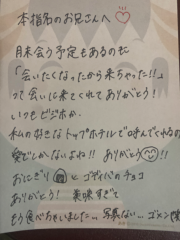 本指名のお兄さんへ♡
月末会う予定もあるのに
「会いたくなったから来ちゃった!!」
って会いに来てくれて ありがとう!
いつもビジホか
私の好きなトップホテルで呼んでくれるの
でしかないよね!! ありがとう
おにぎり🍙とゴディバのチョコ
ありがとう! 美味すぎて
もう食べちゃいました… 写真ない… ゴメン